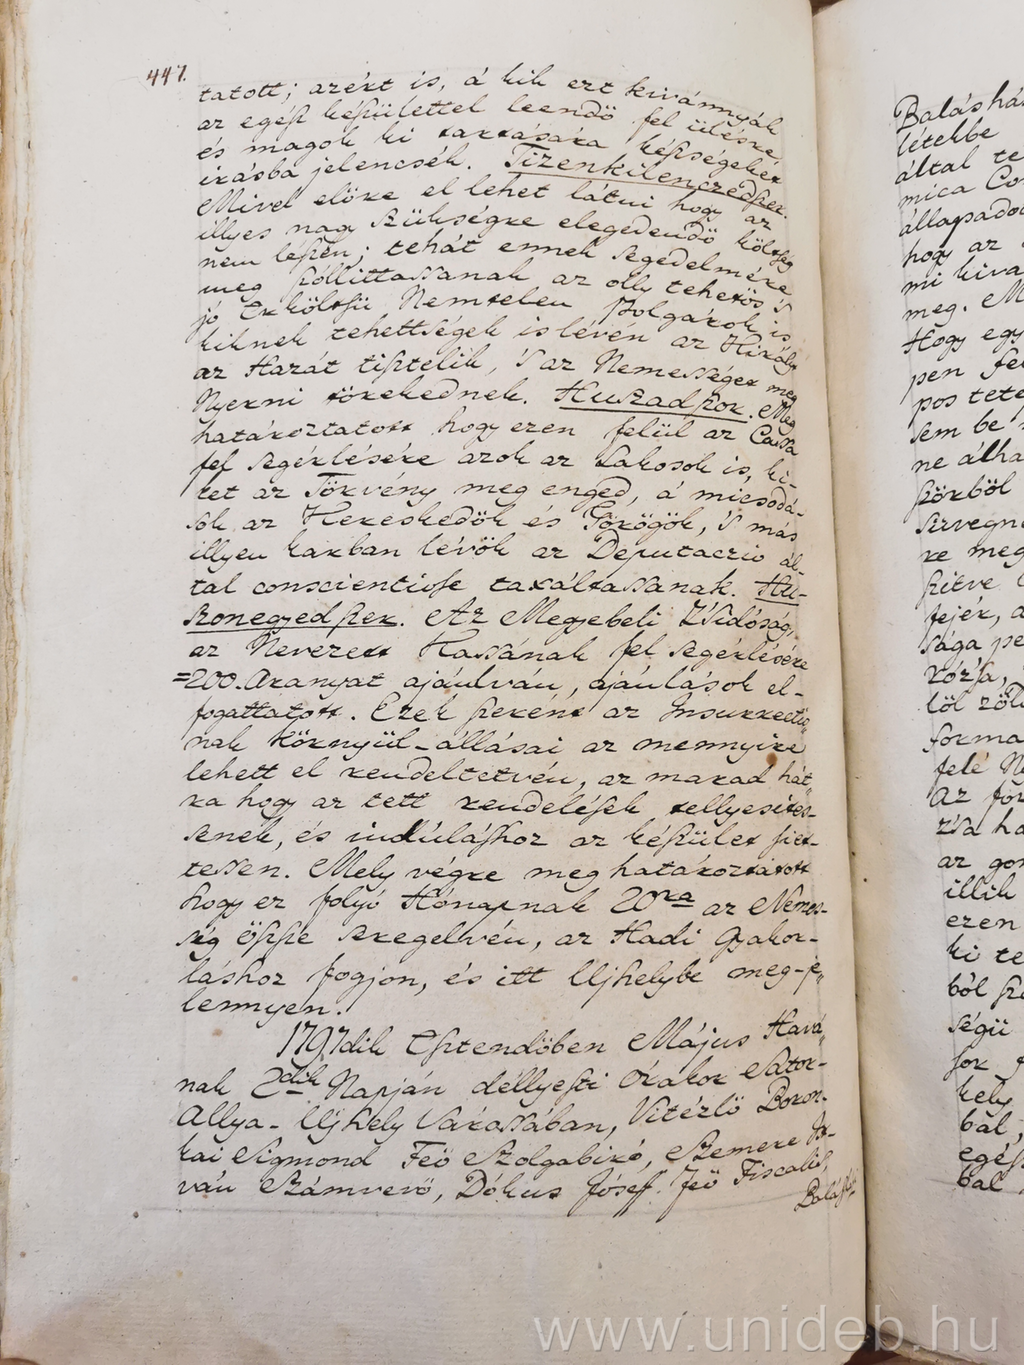 447.
tatott; azért is, á kik ezt kivánnyák
az egész készülettel leendö fel ülésre,
és magok ki tartására készségeket
irásba jelencsék. Tizenkilenczedszer.
Mivel elöre el lehet látni hogy az
illyes nagy szükségre elegedendö költség
nem lészen; tehát ennek segedelmére
meg szóllittassanak az olly tehetös 's
jó Erköltsü Nemtelen Polgárok is
kiknek tehettségek is lévén az Királyt
az Hazát tisztelik, 's az Nemességet meg
Nyerni törekednek. Huszadszor. Meg
határoztatott hogy ezen felül az Cassa
fel segérlésére azok az Lakosok is, ki-
ket az Törvény meg enged, á micsodá-
sok az Kereskedök és Görögök, 's más
illyen karban lévök az Deputaczio ál-
tal conscientiose taxáltassanak. Hu-
szonegyedszer. Az Megyebeli 'Sidóság,
az Nevezett Kassának fel segérlésére
=200. Aranyat ajánlván, ajánlások el-
fogattatott. Ezek szerént az Insurrectio
nak Környül-állásai az mennyire
lehett el rendeltetvén, az marad hát
ra hogy az tett rendelések tellyesittes-
senek, és induláshoz az készület siet-
tessen. Mely végre meg határoztatott
hogy ez folyó Hónapnak 20ra az Nemes-
ség öszsze seregelvén, az Hadi Gyakor-
láshoz fogjon, és itt Ujhelybe meg-je
lennyen.
1797dik Esztendöben Május Havá
nak 2dik Napján déllyesti órákor Sator-
Allya-Ujhely Várossában, Vitézlö Boron-
kai Sigmond Feö Szolgabiró, Szemere Ist-
ván Számvevö, Dókus Jósef Feö Fiscalis,
Balásh
létekbe
által te
mica Co
hogy az
mi kiva
meg. M
Hogy egy
pen fe
pos tete
sem be
ne álha
re meg
fejér, a
sága pe
Rózsa,
forma
felé N
Az for
az gom
illik
ezen
ki te
ból sze
ségü
kely
egész
bal
www.unideb.hu